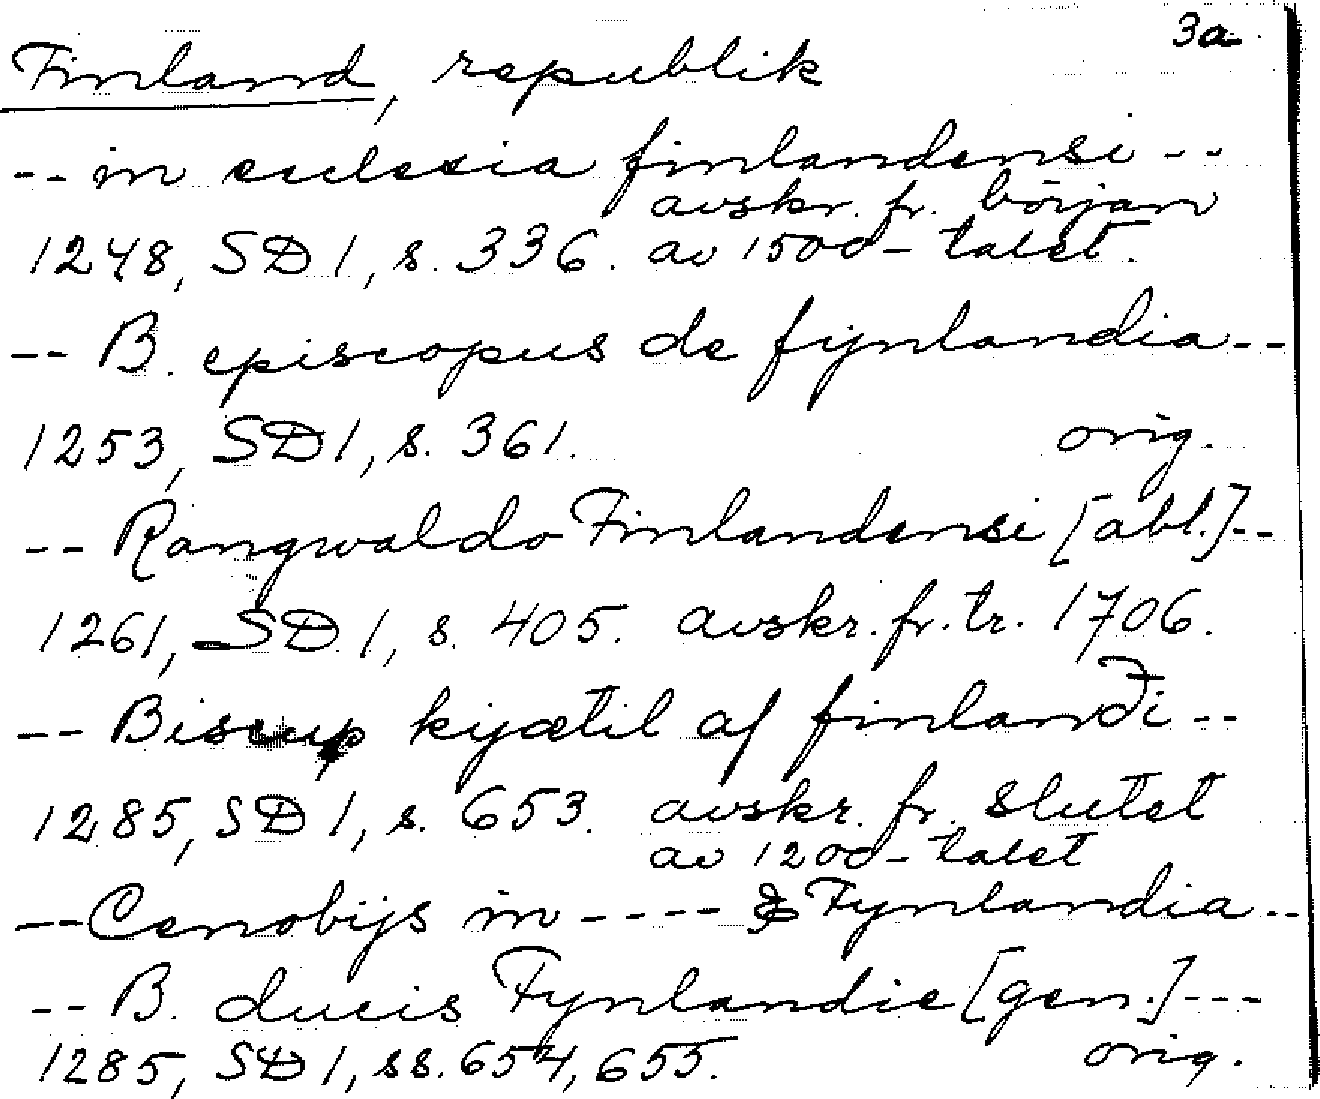 3a
Finland, republik
-- in eculesia finlandensi --
avskr. fr. början
1248, SD 1, s. 336. av 1500-talet.
-- B. episcopus de fijnlandia --
1253, SD 1, s. 361. orig.
-- Rangwaldo Finlandensi [abl.]--
1261, SD 1, s. 405. avskr. fr. tr. 1706.
-- Biscup kijætil af finlandi --
1285, SD 1, s. 653. avskr. fr. slutet
av 1200-talet
-- Cenobijs in ---- & Fynlandia --
-- B. ducis Fynlandie [gen.]---
1285, SD 1, ss. 654, 655. orig.